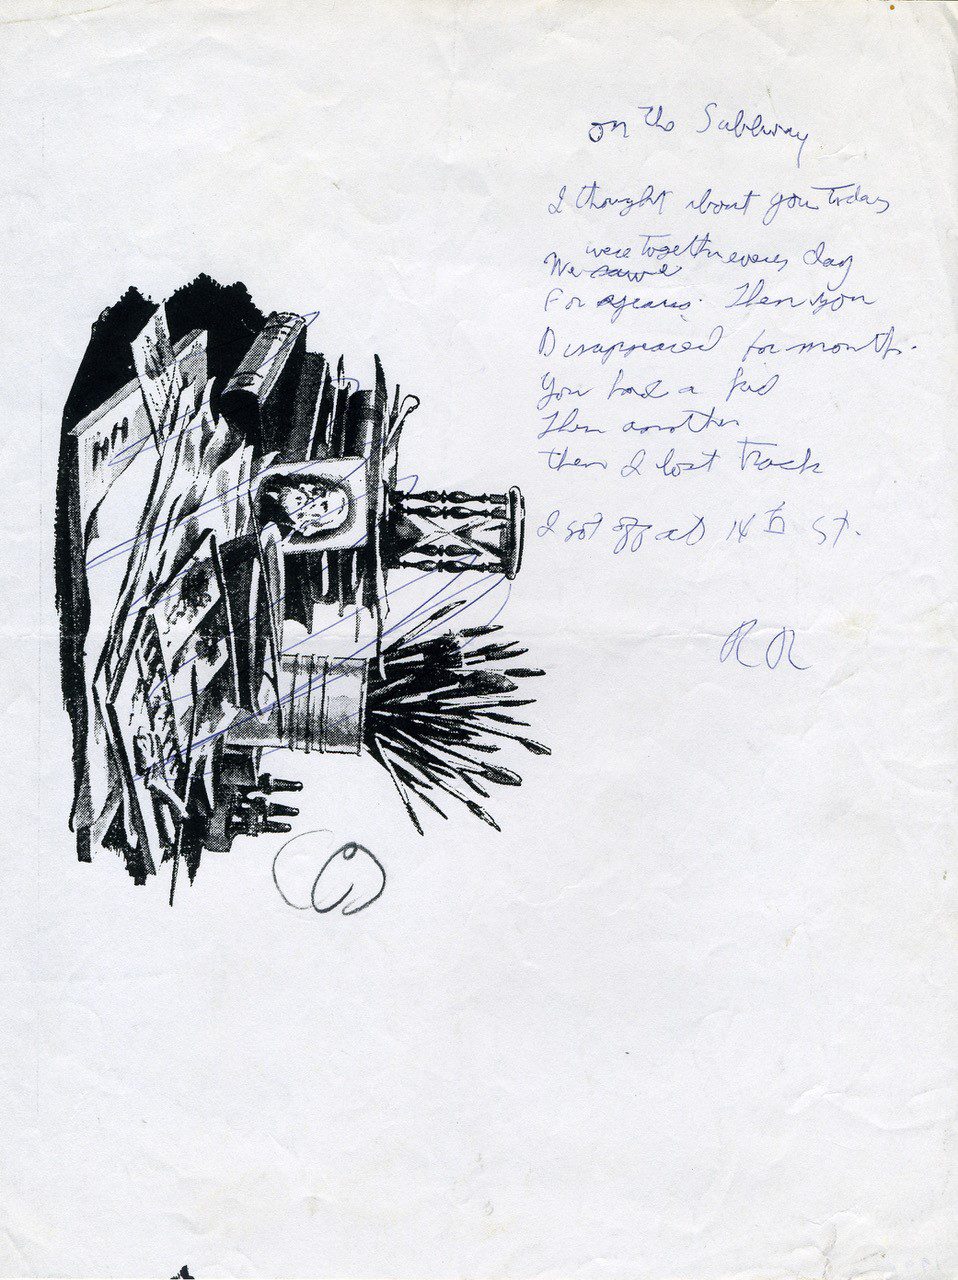 on the Subway
I thought about you Today
were together every day
We saw
For years. Then you
Disappeared for months.
You had a kid
Then another
then I lost Track
I got off at 14th St.
RR